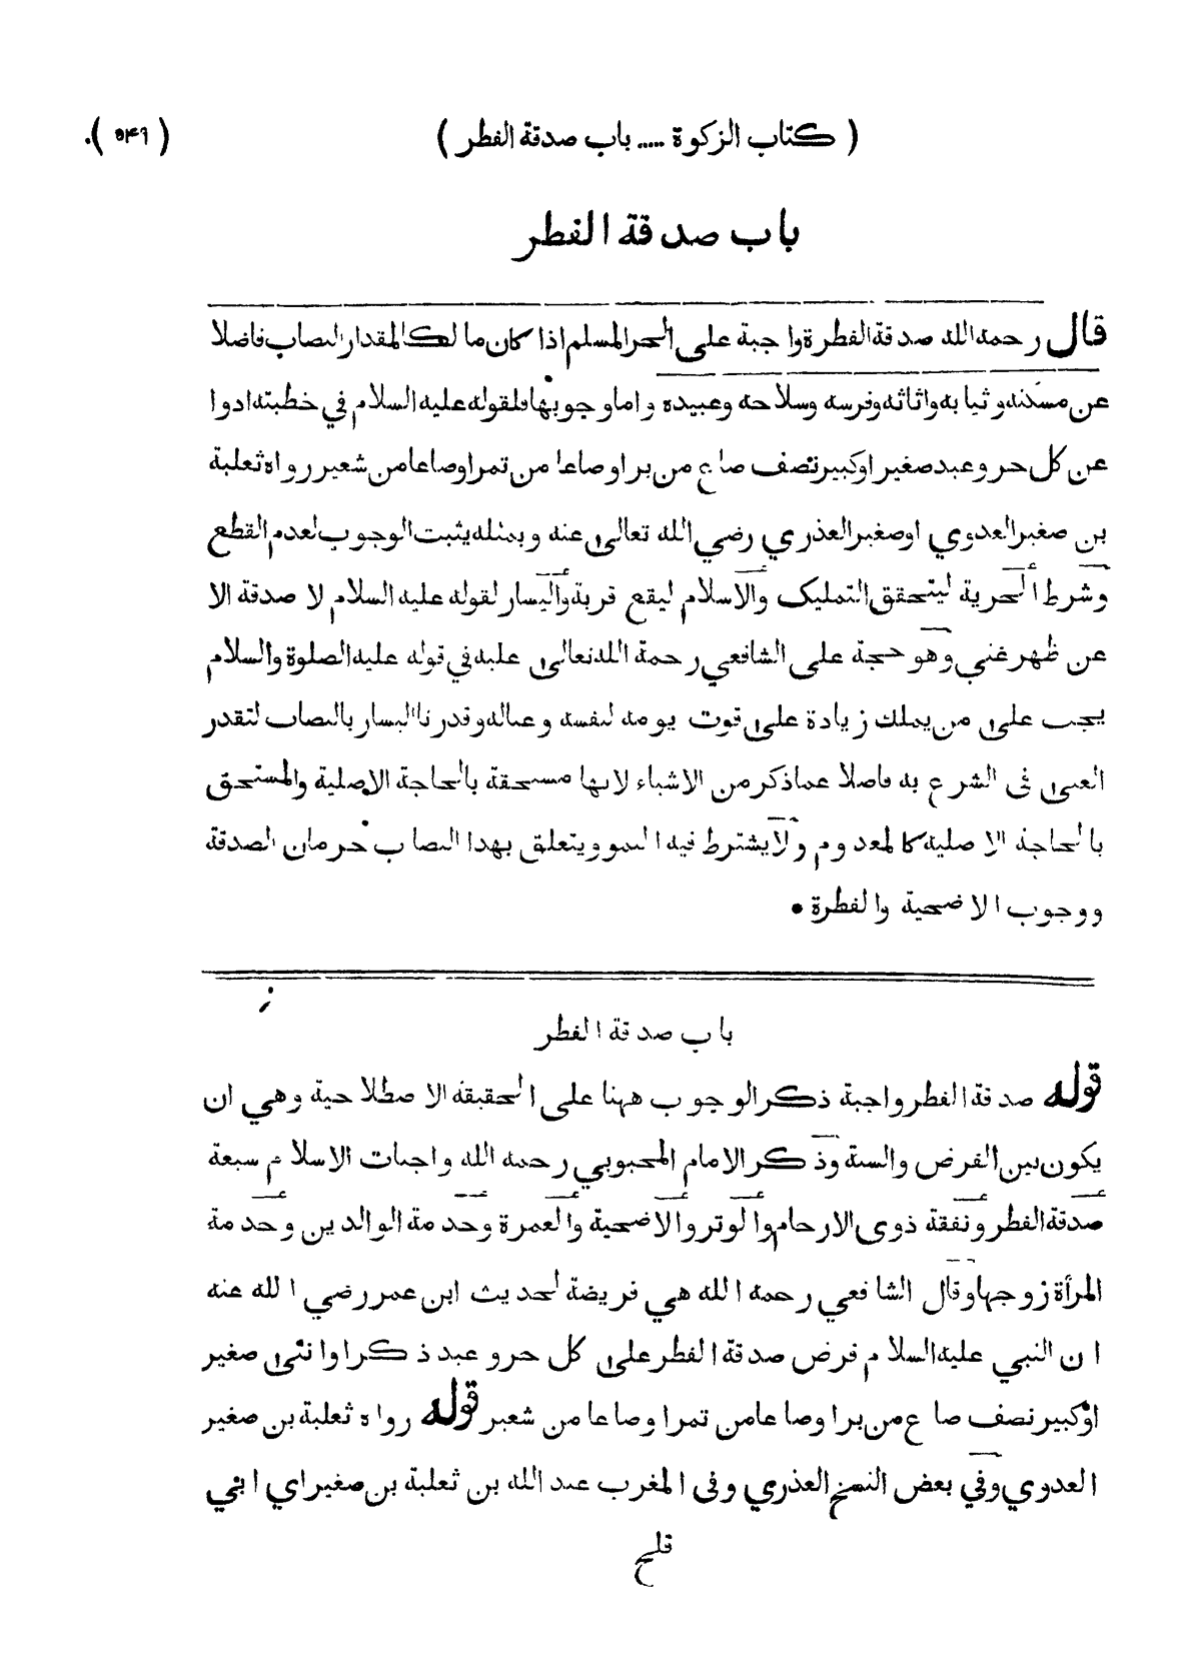 ( كتاب الزكوة ..... باب صدقة الفطر ) ( ٥٤٦ )
باب صدقة الفطر
قال رحمه الله صدقة الفطرة واجبة على الحر المسلم اذا كان مالكا لمقدار النصاب فاضلا
عن مسكنه وثيابه واثاثه وفرسه وسلاحه وعبيده واما وجوبها فلقوله عليه السلام في خطبته ادوا
عن كل حر وعبد صغير او كبير نصف صاع من بر او صاعا من تمر او صاعا من شعير رواه ثعلبة
بن صغير العدوي او صغير العذري رضي الله تعالى عنه وبمثله يثبت الوجوب لعدم القطع
وشرط الحرية ليتحقق التمليك والاسلام ليقع قربة واليسار لقوله عليه السلام لا صدقة الا
عن ظهر غني وهو حجة على الشافعي رحمة الله تعالى عليه في قوله عليه الصلوة والسلام
يجب على من يملك زيادة على قوت يومه لنفسه وعياله وقدرنا اليسار بالنصاب لتقدر
الغنى في الشرع به فاضلا عما ذكر من الاشياء لانها مستحقة بالحاجة الاصلية والمستحق
بالحاجة الاصلية كالمعدوم ولا يشترط فيه النمو ويتعلق بهذا النصاب حرمان الصدقة
ووجوب الاضحية والفطرة •
باب صدقة الفطر
قوله صدقة الفطر واجبة ذكر الوجوب ههنا على الحقيقة الاصطلاحية وهي ان
يكون بين الفرض والسنة وذكر الامام المحبوبي رحمه الله واجبات الاسلام سبعة
صدقة الفطر ونفقة ذوى الارحام والوتر والاضحية والعمرة وخدمة الوالدين وخدمة
المرأة زوجها وقال الشافعي رحمه الله هي فريضة لحديث ابن عمر رضي الله عنه
ان النبي عليه السلام فرض صدقة الفطر على كل حر وعبد ذكر او انثى صغير
او كبير نصف صاع من بر او صاعا من تمر او صاعا من شعير قوله رواه ثعلبة بن صغير
العدوي وفي بعض النسخ العذري وفى المغرب عبد الله بن ثعلبة بن صغير اي ابي